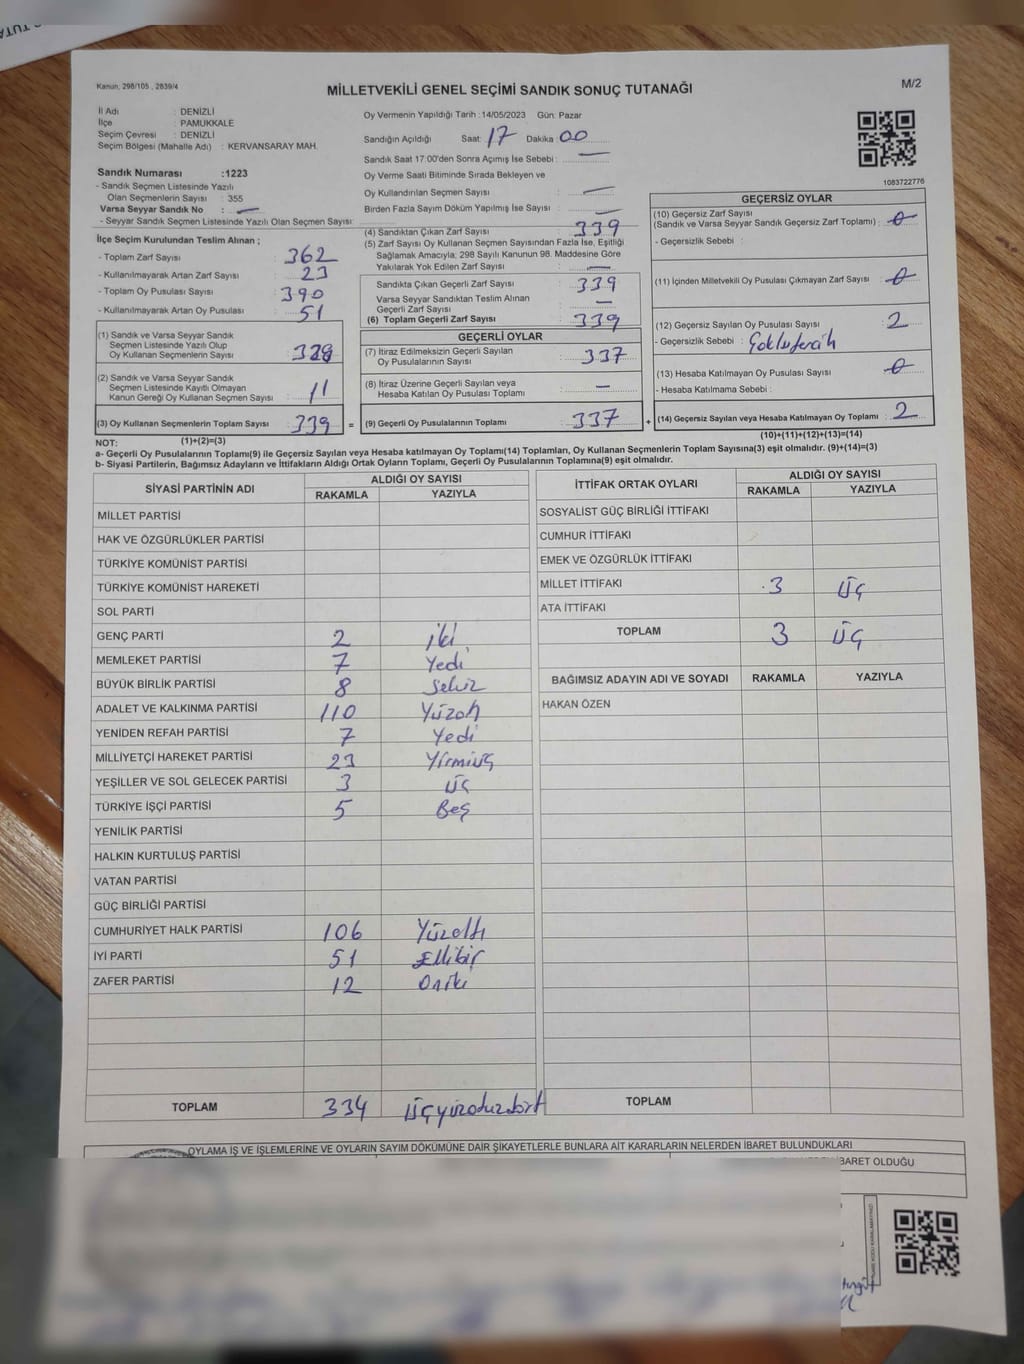 Kanun, 298/105 , 2839/4
MİLLETVEKİLİ GENEL SEÇİMİ SANDIK SONUÇ TUTANAĞI
M/2
İl Adı : DENİZLİ
İlçe : PAMUKKALE
Seçim Çevresi : DENİZLİ
Seçim Bölgesi (Mahalle Adı) : KERVANSARAY MAH.
Oy Vermenin Yapıldığı Tarih :14/05/2023 Gün: Pazar
Sandığın Açıldığı Saat: 17 Dakika: 00
Sandık Saat 17:00'den Sonra Açılmış İse Sebebi : —
Oy Verme Saati Bitiminde Sırada Bekleyen ve
Oy Kullandırılan Seçmen Sayısı : —
Birden Fazla Sayım Döküm Yapılmış İse Sayısı : —
1083722776
Sandık Numarası :1223
- Sandık Seçmen Listesinde Yazılı
Olan Seçmenlerin Sayısı : 355
Varsa Seyyar Sandık No : —
- Seyyar Sandık Seçmen Listesinde Yazılı Olan Seçmen Sayısı:
İlçe Seçim Kurulundan Teslim Alınan ;
- Toplam Zarf Sayısı : 362
- Kullanılmayarak Artan Zarf Sayısı : 23
- Toplam Oy Pusulası Sayısı : 390
- Kullanılmayarak Artan Oy Pusulası : 51
(1) Sandık ve Varsa Seyyar Sandık
Seçmen Listesinde Yazılı Olup
Oy Kullanan Seçmenlerin Sayısı : 328
(2) Sandık ve Varsa Seyyar Sandık
Seçmen Listesinde Kayıtlı Olmayan
Kanun Gereği Oy Kullanan Seçmen Sayısı : 11
(3) Oy Kullanan Seçmenlerin Toplam Sayısı : 339
(4) Sandıktan Çıkan Zarf Sayısı : 339
(5) Zarf Sayısı Oy Kullanan Seçmen Sayısından Fazla İse, Eşitliği
Sağlamak Amacıyla; 298 Sayılı Kanunun 98. Maddesine Göre
Yakılarak Yok Edilen Zarf Sayısı : —
Sandıkta Çıkan Geçerli Zarf Sayısı : 339
Varsa Seyyar Sandıktan Teslim Alınan
Geçerli Zarf Sayısı : —
(6) Toplam Geçerli Zarf Sayısı : 339
GEÇERLİ OYLAR
(7) İtiraz Edilmeksizin Geçerli Sayılan
Oy Pusulalarının Sayısı : 337
(8) İtiraz Üzerine Geçerli Sayılan veya
Hesaba Katılan Oy Pusulası Toplamı : —
= (9) Geçerli Oy Pusulalarının Toplamı : 337
GEÇERSİZ OYLAR
(10) Geçersiz Zarf Sayısı
(Sandık ve Varsa Seyyar Sandık Geçersiz Zarf Toplamı) : 0
- Geçersizlik Sebebi :
(11) İçinden Milletvekili Oy Pusulası Çıkmayan Zarf Sayısı : 0
(12) Geçersiz Sayılan Oy Pusulası Sayısı : 2
- Geçersizlik Sebebi : Çoklu tercih
(13) Hesaba Katılmayan Oy Pusulası Sayısı : 0
- Hesaba Katılmama Sebebi :
+ (14) Geçersiz Sayılan veya Hesaba Katılmayan Oy Toplamı : 2
NOT: (1)+(2)=(3)
(10)+(11)+(12)+(13)=(14)
a- Geçerli Oy Pusulalarının Toplamı(9) ile Geçersiz Sayılan veya Hesaba katılmayan Oy Toplamı(14) Toplamları, Oy Kullanan Seçmenlerin Toplam Sayısına(3) eşit olmalıdır. (9)+(14)=(3)
b- Siyasi Partilerin, Bağımsız Adayların ve İttifakların Aldığı Ortak Oyların Toplamı, Geçerli Oy Pusulalarının Toplamına(9) eşit olmalıdır.
SİYASİ PARTİNİN ADI
ALDIĞI OY SAYISI
RAKAMLA YAZIYLA
MİLLET PARTİSİ
HAK VE ÖZGÜRLÜKLER PARTİSİ
TÜRKİYE KOMÜNİST PARTİSİ
TÜRKİYE KOMÜNİST HAREKETİ
SOL PARTİ
GENÇ PARTİ 2 iki
MEMLEKET PARTİSİ 7 Yedi
BÜYÜK BİRLİK PARTİSİ 8 Sekiz
ADALET VE KALKINMA PARTİSİ 110 Yüzon
YENİDEN REFAH PARTİSİ 7 Yedi
MİLLİYETÇİ HAREKET PARTİSİ 23 Yirmiüç
YEŞİLLER VE SOL GELECEK PARTİSİ 3 üç
TÜRKİYE İŞÇİ PARTİSİ 5 Beş
YENİLİK PARTİSİ
HALKIN KURTULUŞ PARTİSİ
VATAN PARTİSİ
GÜÇ BİRLİĞİ PARTİSİ
CUMHURİYET HALK PARTİSİ 106 Yüzaltı
İYİ PARTİ 51 Ellibir
ZAFER PARTİSİ 12 Oniki
TOPLAM 334 Üçyüzotuzdört
İTTİFAK ORTAK OYLARI
ALDIĞI OY SAYISI
RAKAMLA YAZIYLA
SOSYALİST GÜÇ BİRLİĞİ İTTİFAKI
CUMHUR İTTİFAKI
EMEK VE ÖZGÜRLÜK İTTİFAKI
MİLLET İTTİFAKI 3 Üç
ATA İTTİFAKI
TOPLAM 3 Üç
BAĞIMSIZ ADAYIN ADI VE SOYADI RAKAMLA YAZIYLA
HAKAN ÖZEN
TOPLAM
OYLAMA İŞ VE İŞLEMLERİNE VE OYLARIN SAYIM DÖKÜMÜNE DAİR ŞİKAYETLERLE BUNLARA AİT KARARLARIN NELERDEN İBARET BULUNDUKLARI
İBARET OLDUĞU